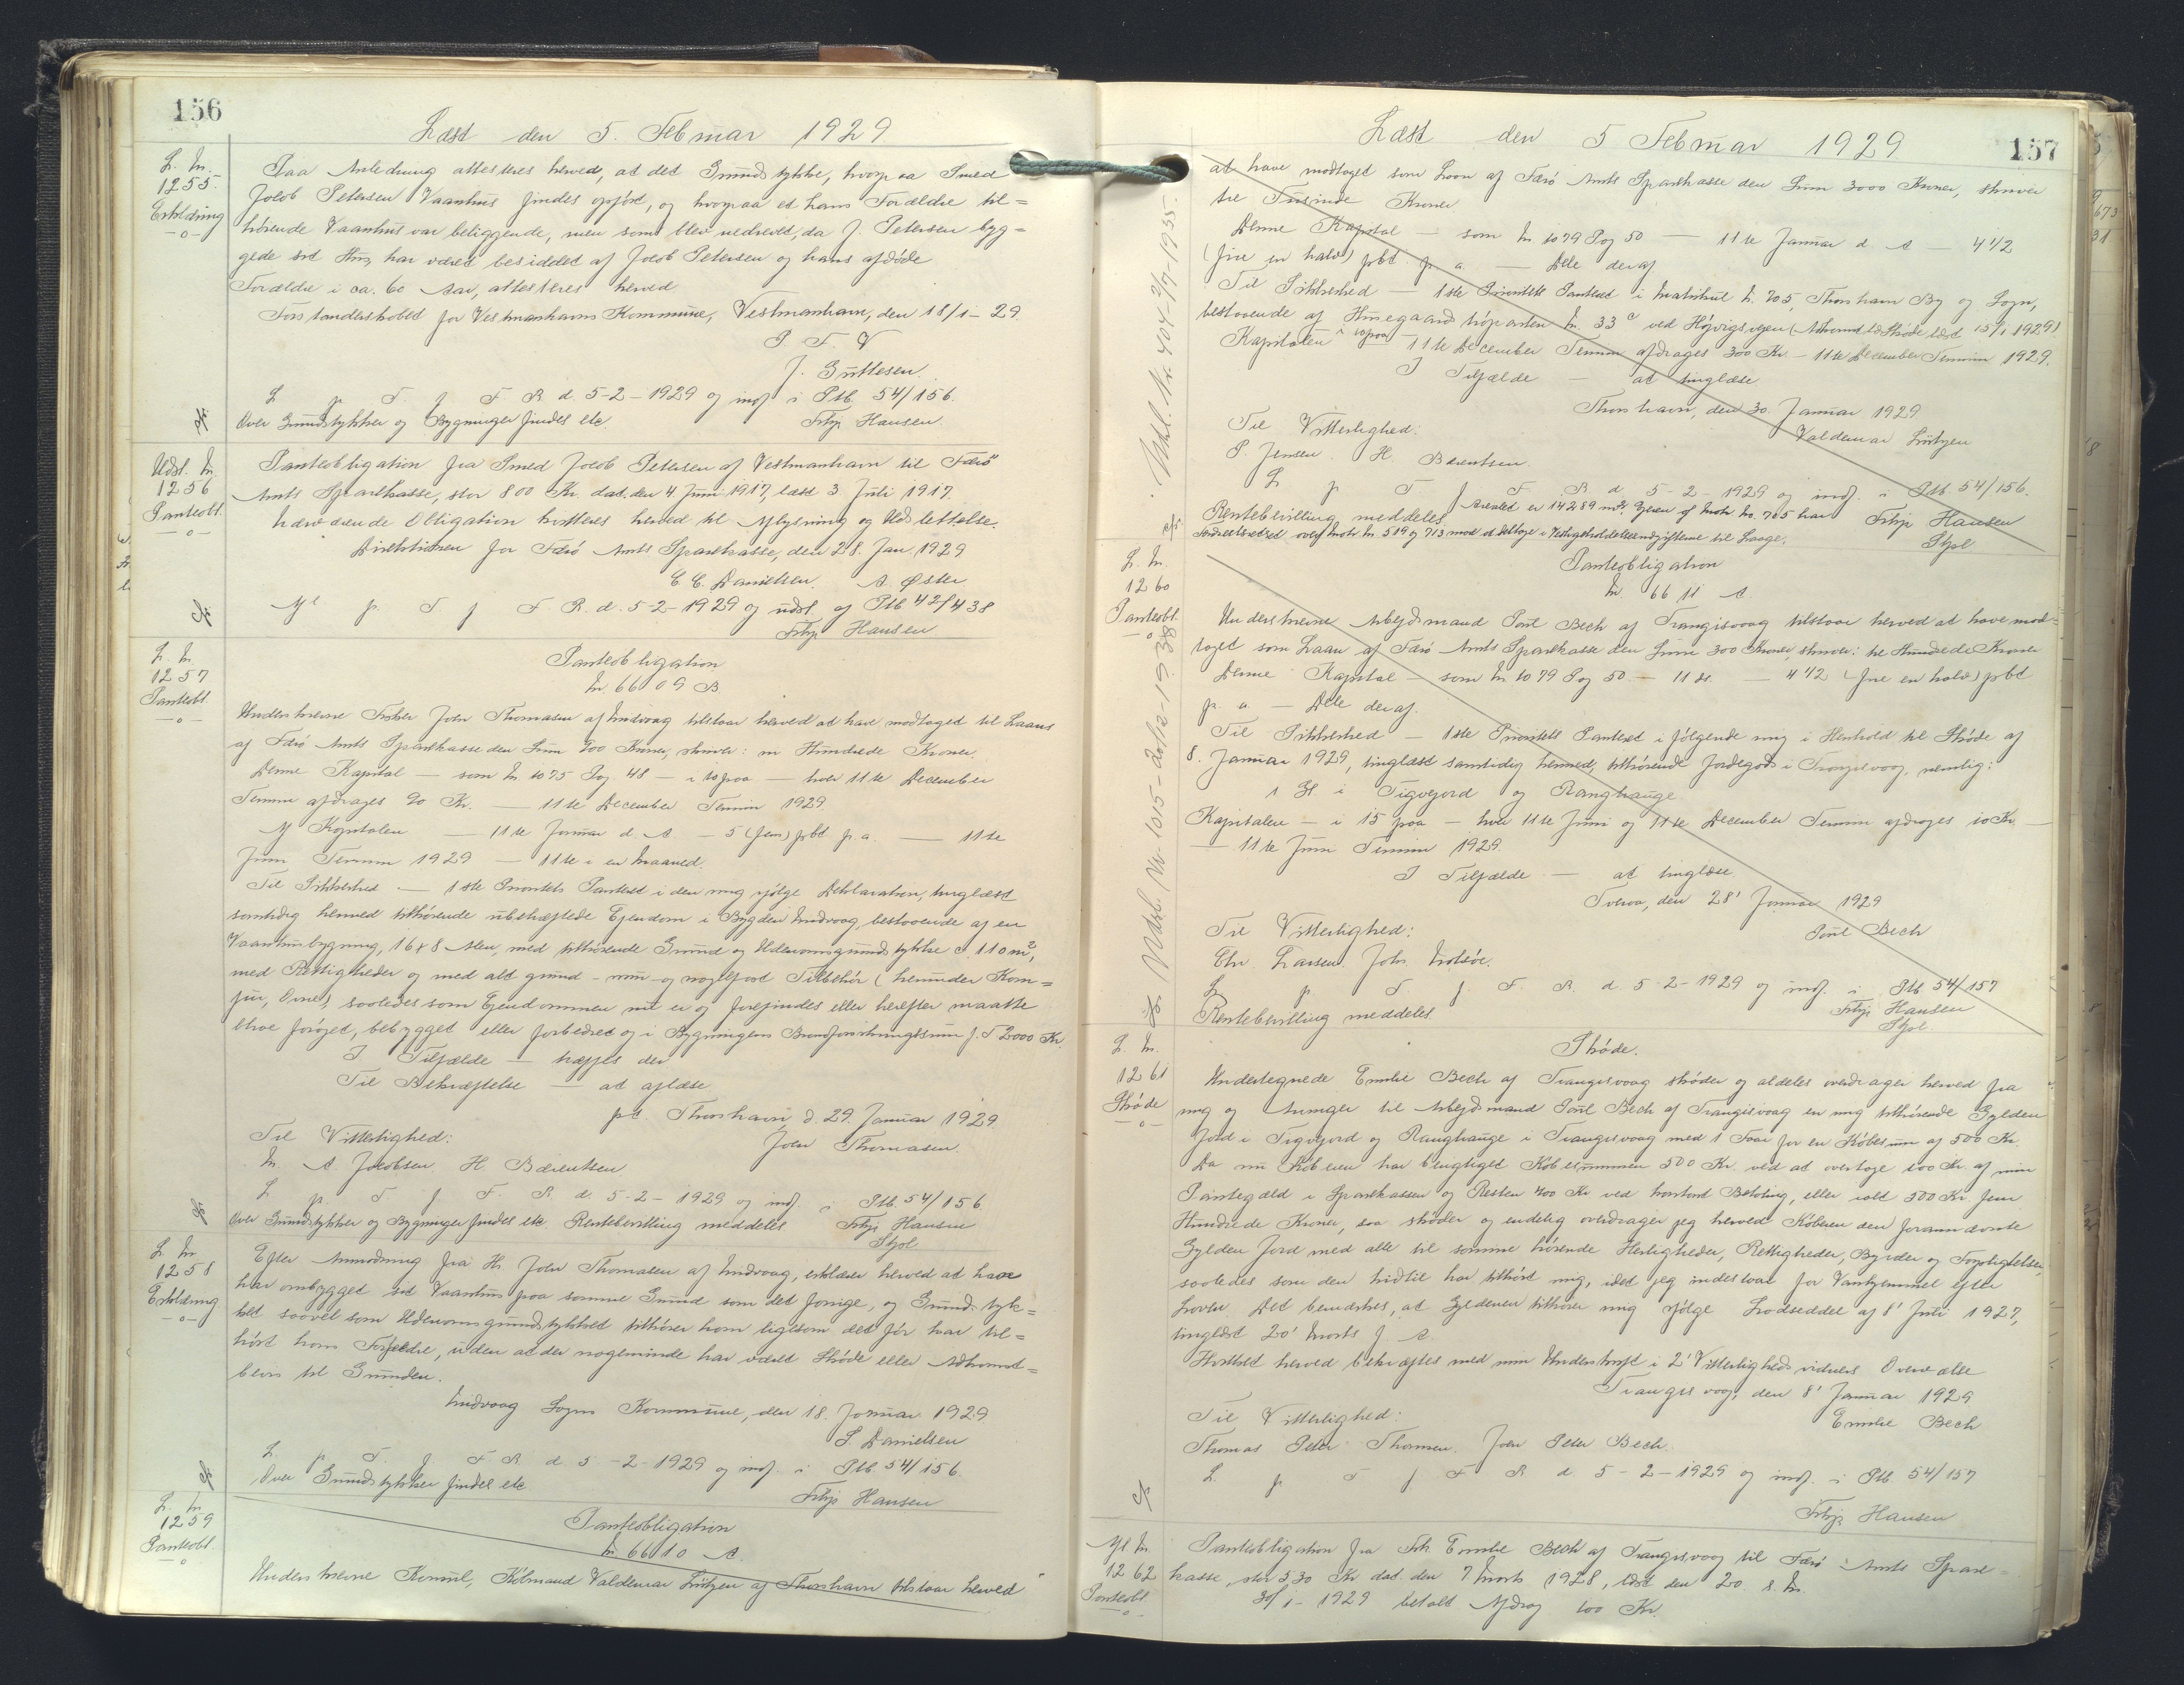 156
Læst den 5. Februar 1929.
L. Nr.
1255.
Erklæring
Paa Anledning attesteres herved, at det Grundstykke, hvorpaa Smed
Jacob Petersen Vaanhus findes opført, og hvorpaa et hans Forældre til=
hørende Vaanhus var beliggende, men som blev nedrevet, da J. Petersen byg=
gede sit Hus, har været besiddet af Jacob Petersen og hans afdøde
Forældre i ca. 60 Aar, attesteres herved.
Forstanderskabet for Vestmanhavns Kommune, Vestmanhavn, den 18/1-29.
P. F. V
J. Guttesen.
L p. T. f. F. R. d. 5-2-1929 og indf. i Ptb. 54/156.
Over Grundstykker og Bygninger findes etc.
Filip Hansen.
Udsl. Nr.
1256
Panteobl.
Panteobligation fra Smed Jacob Petersen af Vestmanhavn til Færø
Amts Sparekasse, stor 800 Kr. dat. den 4. Juni 1917, læst 3. Juli 1917.
Nærværende Obligation kvitteres herved til Aflysning og Udslettelse.
Direktionen for Færø Amts Sparekasse, den 28. Jan. 1929
C. C. Danielsen. A. Øster
Afl. p. T. f. F. R. d. 5-2-1929 og udsl. af Ptb 42/438
Filip Hansen
L. Nr.
1257
Panteobl.
Panteobligation
Nr. 6609 B.
Underskrevne Fisker Joen Thomasen af Midvaag tilstaar herved at have modtaget til Laans
af Færø Amts Sparekasse den Sum 900 Kroner, skriver: ni Hundrede Kroner.
Denne Kapital — som Nr. 1075 Pag 48 — i 10 paa — hver 11te December
Termin afdrages 90 Kr. — 11te December Termin 1929.
Af Kapitalen — 11te Januar d. A. — 5 (fem) pCt p. a. — 11te
Juni Termin 1929 — 11te i en Maaned.
Til Sikkerhed — 1ste Prioritets Panteret i den mig ifølge Deklaration, tinglæst
samtidig hermed tilhørende ubehæftede Ejendom i Bygden Midvaag, bestaaende af en
Vaanhusbygning, 16x8 Alen, med tilhørende Grund og Udenomsgrundstykke 110 m²,
med Rettigheder og med alt grund- mur- og naglefast Tilbehør (herunder Kom=
fur, Ovne), saaledes som Ejendommen nu er og forefindes eller herefter maatte
blive forøget, bebygget eller forbedret og i Bygningens Brandforsikringssum f. T 2000 Kr.
I Tilfælde — træffes der
Til Bekræftelse — at aflæse.
pt. Thorshavn, d. 29. Januar 1929.
Joen Thomasen.
Til Vitterlighed:
M. A. Jacobsen. H. Bærentsen
L p. T. f. F. R. d. 5-2-1929 og indf. i Ptb. 54/156.
Over Grundstykker og Bygninger findes etc. Rentebevilling meddeles.
Filip Hansen
Stpl.
L. Nr.
1258
Erklæring
Efter Anmodning fra Hr. Joen Thomasen af Midvaag, erklæres herved at have
har ombygget sit Vaanhus paa samme Grund som det forrige, og Grundstyk=
ket saavel som Udenomsgrundstykket tilhører ham ligesom det før har til=
hørt hans Forfædre, uden at der nogensinde har været Skøde eller Adkomst=
bevis til Grunden.
Midvaag Sogns Kommune, den 18. Januar 1929
S. Danielsen
L p. T. f. F. R. d. 5-2-1929 og indf. i Ptb. 54/156.
Over Grundstykker findes etc.
Filip Hansen
L. Nr.
1259
Panteobl.
Panteobligation
Nr. 6610 A.
Underskrevne Kommunelæge Valdemar Lützen af Thorshavn tilstaar herved
157
Læst den 5 Februar 1929
at have modtaget som Laan af Færø Amts Sparekasse den Sum 3000 Kroner, skriver
tre Tusinde Kroner
Denne Kapital — som Nr. 1079 Pag 50 — 11te Januar d. A — 4 1/2
(fire en halv) pCt. p. a. — Alle deraf.
Til Sikkerhed — 1ste Prioritets Panteret i Matrikul Nr. 705, Thorshavn By og Sogn,
bestaaende af Husegaards Nr. 33c ved Højvigsvejen (Adkomst Skøde læst 15/1 1929)
Kapitalen i 10 paa 11te December Termin afdrages 300 Kr. — 11te December Termin 1929.
I Tilfælde — at tinglæse.
Thorshavn, den 30. Januar 1929
Valdemar Lützen
Til Vitterlighed:
P. Jensen. H. Bærentsen.
L p. T. f. F. R. d. 5-2-1929 og indf. i Ptb 54/156.
Rentebevilling meddeles. Arealet er 14289 m². Ejeren af Matr. Nr. 705 har
Færdselsret over Matr. Nr. 519 og 713 mod at deltage i Vedligeholdelsesudgifterne til Laage.
Filip Hansen
Stpl
Udsl. Nr. 404-2/7-1935.
L. Nr.
1260
Panteobl.
Panteobligation
Nr. 6611 A
Underskrevne Arbejdsmand Poul Bech af Trangisvaag tilstaar herved at have mod=
taget som Laan af Færø Amts Sparekasse den Sum 300 Kroner, skriver: tre Hundrede Kroner
Denne Kapital — som Nr. 1079 Pag 50 — 11 ds. — 4 1/2 (fire en halv) pCt
p. a. — Alle deraf.
Til Sikkerhed — 1ste Prioritets Panteret i følgende mig i Henhold til Skøde af
8. Januar 1929, tinglæst samtidig hermed, tilhørende Jordegods i Trangisvaag, nemlig:
1 Gl. i Tigvejord og Ranghauge
Kapitalen — i 15 paa — hver 11te Juni og 11te December Termin afdrages 10 Kr. —
— 11te Juni Termin 1929.
I Tilfælde — at tinglæse
Tveraa, den 28' Januar 1929
Poul Bech
Til Vitterlighed:
Chr Larsen. Johs.
L p. T. f. F. R. d. 5-2-1929 og indf. i Ptb 54/157
Rentebevilling meddeles.
Filip Hansen
Stpl.
Udsl. Nr. 1015-20/12-1938
L. Nr.
1261
Skøde
Skøde.
Undertegnede Emilie Bech af Trangisvaag skøder og aldeles overdrager herved fra
mig og Arvinger til Arbejdsmand Poul Bech af Trangisvaag en mig tilhørende Gylden
Jord i Tigvejord og Ranghauge i Trangisvaag med 1 Faar for en Købesum af 500 Kr.
Da nu Køberen har berigtiget Købesummen 500 Kr. ved at overtage 100 Kr. af min
Pantegæld i Sparekassen og Resten 400 Kr ved kontant Betaling, eller ialt 500 Kr. fem
Hundrede Kroner, saa skøder og endelig overdrager jeg herved Køberen den forannævnte
Gylden Jord med alle til samme hørende Herligheder, Rettigheder, Byrder og Forpligtelser,
saaledes som den hidtil har tilhørt mig, idet jeg indestaar for Vanhjemmel efter
Loven. Det bemærkes, at Gyldenen tilhører mig ifølge Lodseddel af 8' Juli 1927,
tinglæst 20' Marts f. A.
Hvilket herved bekræftes med min Underskrift i 2' Vitterlighedsvidners Overværelse
Trangisvaag, den 8' Januar 1929
Emilie Bech
Til Vitterlighed:
Thomas Peter Thomsen. Joen Peter Bech.
L. p. T f F R. d. 5-2-1929 og indf. i Ptb. 54/157
Filip Hansen
Afl. Nr.
1262
Panteobl.
Panteobligation fra Frk. Emilie Bech af Trangisvaag til Færø Amts Spare=
kasse, stor 530 Kr dat. den 7 Marts 1928, læst den 20. s. M.
30/1-1929 betalt Afdrag 100 Kr.